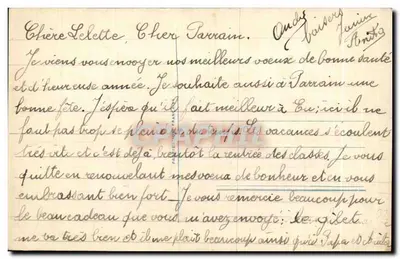 Chère Lelette. Cher Parrain.
Je viens vous envoyer nos meilleurs voeux de bonne santé
et d'heureuse année. Je souhaite aussi à Parrain une
bonne fête. J'espère qu'il fait meilleur à Eu; ici il ne
faut pas trop se plaindre du temps. Les vacances s'écoulent
très vite et c'est déjà bientôt la rentrée des classes. Je vous
quitte en renouvelant mes voeux de bonheur et en vous
embrassant bien fort. Je vous remercie beaucoup pour
le beau cadeau que vous m'avez envoyé; le gilet
me va très bien et il me plait beaucoup ainsi qu'à Papa et
baisers